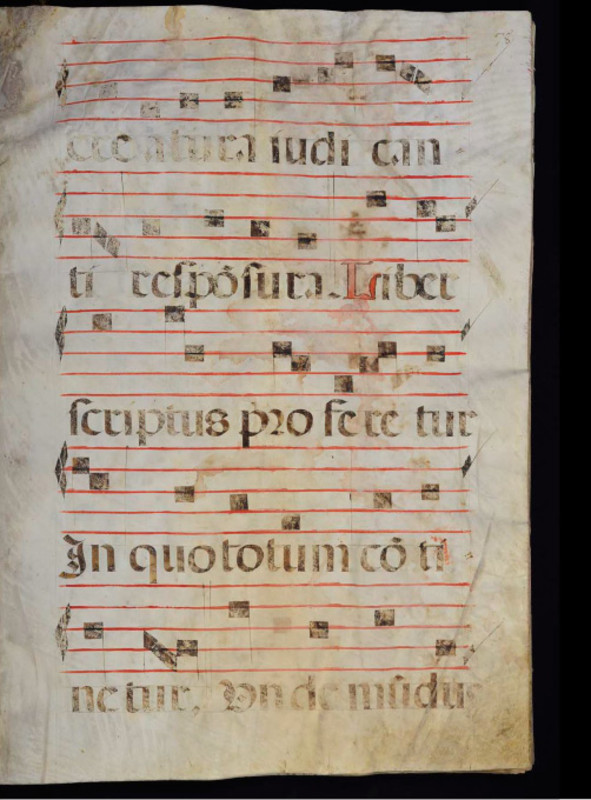 creatura iudi can
ti respōsura. Liber
scriptus pro fe re tur
In quo totum cō ti
ne tur, Vn de mūdus